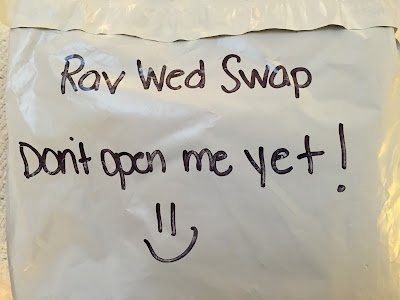 Rav Wed Swap
Don't open me yet!